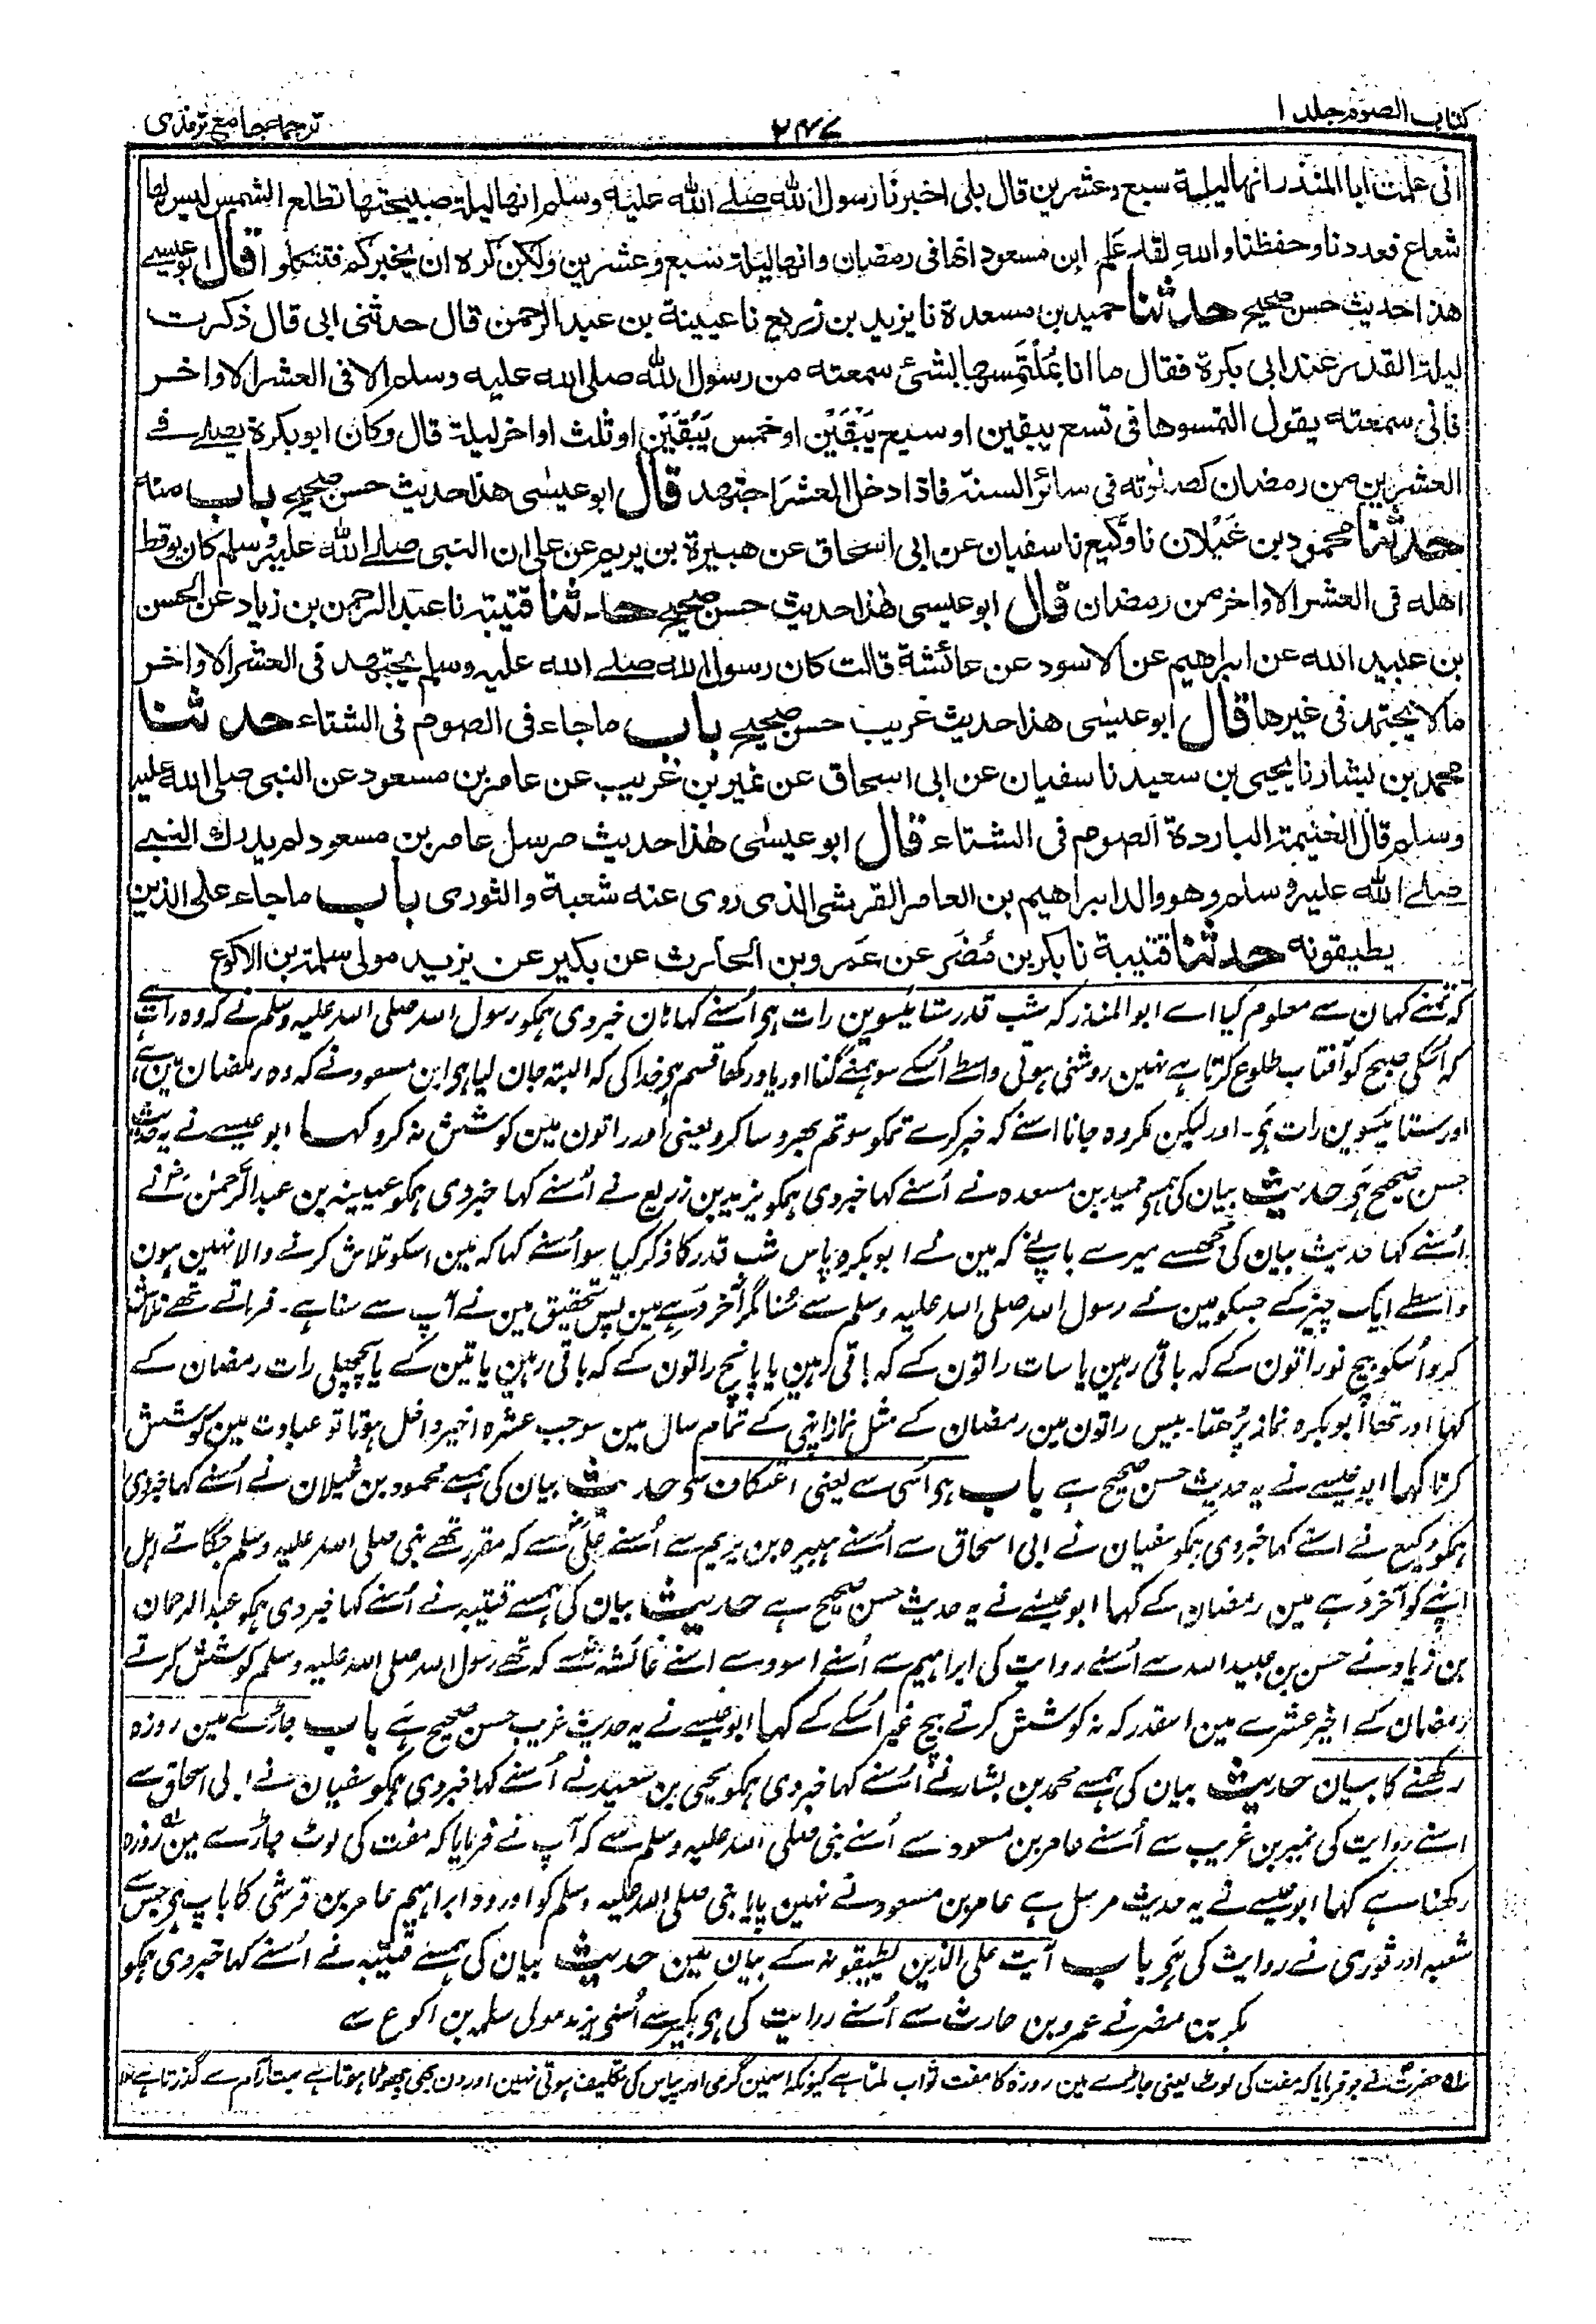 کتاب الصوم جلد ا
۲۴۷
ترجمۂ جامع ترمذی
انی علمت ابا المنذر انها ليلية سبع وعشرين قال بلى اخبرنا رسول الله صلے الله عليه وسلم انها ليلة صبيحتها تطلع الشمس ليس لها
شعاع فعددنا وحفظنا والله لقد علم ابن مسعود انها فى رمضان وانها ليلة سبع وعشرين ولكن كره ان يخبركم فتتكلوا قال ابو عيسے
هذا حديث حسن صحيح حدثنا حميد بن مسعدة نا يزيد بن زريع نا عيينة بن عبد الرحمن قال حدثنى ابى قال ذكرت
ليلة القدر عند ابى بكرة فقال ما انا بملتمسها لشئ سمعته من رسول الله صلى الله عليه وسلم الا فى العشر الاواخر
فانى سمعته يقول التمسوها فى تسع يبقين او سبع يَبْقَيْن او خمس يَبْقَيْن او ثلث اواخر ليلة قال وكان ابو بكرة يصلے فے
العشرين من رمضان كصلوته فى سائر السنة فاذا دخل العشر اجتهد قال ابو عيسٰى هذا حديث حسن صحيح باب منه
حدثنا محمود بن غَيْلان نا وكيع نا سفيان عن ابى اسحاق عن هبيرة بن يريم عن على ان النبى صلے الله عليه وسلم كان يوقظ
اهله فى العشر الاواخر من رمضان قال ابو عيسى هٰذا حديث حسن صحيح حدثنا قتيبة نا عبد الرحمن بن زياد عن الحسن
بن عبيد الله عن ابراهيم عن الاسود عن عائشة قالت كان رسول الله صلے الله عليه وسلم يجتهد فى العشر الاواخر
ما لا يجتهد فى غيرها قال ابو عيسٰى هذا حديث غريب حسن صحيح باب ما جاء فى الصوم فى الشتاء حدثنا
محمد بن بشار نا يحيى بن سعيد نا سفيان عن ابى اسحاق عن نمير بن غريب عن عامر بن مسعود عن النبى صلى الله عليه
وسلم قال الغنيمة الباردة الصوم فى الشتاء قال ابو عيسٰى هٰذا حديث مرسل عامر بن مسعود لم يدرك النبے
صلے الله عليه وسلم وهو والد ابراهيم بن العامر القرشى الذى روى عنه شعبة والثورى باب ما جاء على الذين
يطيقونه حدثنا قتيبة نا بكر بن مُضَر عن عمرو بن الحارث عن بكير عن يزيد مولى سلمة بن الاكوع
کہ تمنے کہان سے معلوم کیا اے ابو المنذر کہ شب قدر ستائیسوین رات ہی اُسنے کہا ہان خبر دی ہمکو رسول اللہ صلی اللہ علیہ وسلم نے کہ وہ رات ہے
کہ اُسکی صبح کو آفتاب طلوع کرتا ہے نہین روشنی ہوتی واسطے اُسکے سو ہمنے گنا اور یاد رکھا قسم ہی خدا کی کہ البتہ جان لیا ہی ابن مسعود نے کہ وہ رمضان مین ہے
اور ستائیسوین رات ہی۔ اور لیکن مکروہ جانا اسنے کہ خبر کرے تمکو سو تم بھروسا کرو یعنی اور راتون مین کوشش نہ کرو کہا ابو عیسے نے یہ حدیث
حسن صحیح ہی حدیث بیان کی ہمسے حمید بن مسعدہ نے اُسنے کہا خبر دی ہمکو یزید بن زریع نے اُسنے کہا خبر دی ہمکو عیینہ بن عبد الرحمٰن نے
اُسنے کہا حدیث بیان کی مجھسے میرے باپ نے کہ مین نے ابو بکرہ پاس شب قدر کا ذکر کیا سو اُسنے کہا کہ مین اسکو تلاش کرنے والا نہین ہون
واسطے ایک چیز کے جسکو مین نے رسول اللہ صلی اللہ علیہ وسلم سے سُنا مگر آخر دہے مین پس تحقیق مین نے آپ سے سنا ہے۔ فرماتے تھے تلاش
کرو اُسکو بیچ نو راتون کے کہ باقی رہین یا سات راتون کے کہ باقی رہین یا پانچ راتون کے کہ باقی رہین یا تین کے یا پچھلی رات رمضان کے
کہا اور تھا ابو بکرہ نماز پڑھتا۔ بیس راتون مین رمضان کے مثل نماز اپنی کے تمام سال مین سو جب عشرہ اخیر داخل ہوتا تو عبادت مین کوشش
کرتا کہا ابو عیسے نے یہ حدیث حسن صحیح ہے باب ہی اُسی سے یعنی اعتکاف سے حدیث بیان کی ہمسے محمود بن غیلان نے اُسنے کہا خبر دی
ہمکو وکیع نے اسنے کہا خبر دی ہمکو سفیان نے ابی اسحاق سے اُسنے ہبیرہ بن یریم سے اُسنے علیؓ سے کہ مقرر تھے نبی صلی اللہ علیہ وسلم جگاتے اہل
اپنے کو آخر دہے مین رمضان کے کہا ابو عیسے نے یہ حدیث حسن صحیح ہے حدیث بیان کی ہمسے قتیبہ نے اُسنے کہا خبر دی ہمکو عبد الرحمان
بن زیاد نے حسن بن عبید اللہ سے اُسنے روایت کی ابراہیم سے اُسنے اسود سے اسنے عائشہؓ سے کہ تھے رسول اللہ صلی اللہ علیہ وسلم کوشش کرتے
رمضان کے اخیر عشرے مین اسقدر کہ نہ کوشش کرتے بیچ غیر اُسکے کے کہا ابو عیسے نے یہ حدیث غریب حسن صحیح ہے باب جاڑے مین روزہ
رکھنے کا بیان حدیث بیان کی ہمسے محمد بن بشار نے اُسنے کہا خبر دی ہمکو یحیی بن سعید نے اُسنے کہا خبر دی ہمکو سفیان نے ابی اسحاق سے
اسنے روایت کی نمیر بن غریب سے اُسنے عامر بن مسعود سے اُسنے نبی صلی اللہ علیہ وسلم سے کہ آپ نے فرمایا کہ مفت کی لوٹ جاڑے مین روزہ
رکھنا ہے کہا ابو عیسے نے یہ حدیث مرسل ہے عامر بن مسعود نے نہین پایا نبی صلی اللہ علیہ وسلم کو اور وہ ابراہیم عامر بن قرشی کا باپ ہی جس سے
شعبہ اور ثوری نے روایت کی ہی باب آیت علی الذین یطیقونہ کے بیان مین حدیث بیان کی ہمسے قتیبہ نے اُسنے کہا خبر دی ہمکو
بکر بن مضر نے عمرو بن حارث سے اُسنے روایت کی ہی بکیر سے اُسنے یزید مولی سلمہ بن اکوع سے
حضرتؐ نے جو فرمایا کہ مفت کی لوٹ یعنی جاڑے مین روزہ کا مفت ثواب ملتا ہے کیونکہ اسمین گرمی اور پیاس کی تکلیف ہوتی نہین اور دن بھی چھوٹا ہوتا ہے آرام سے گذرتا ہے